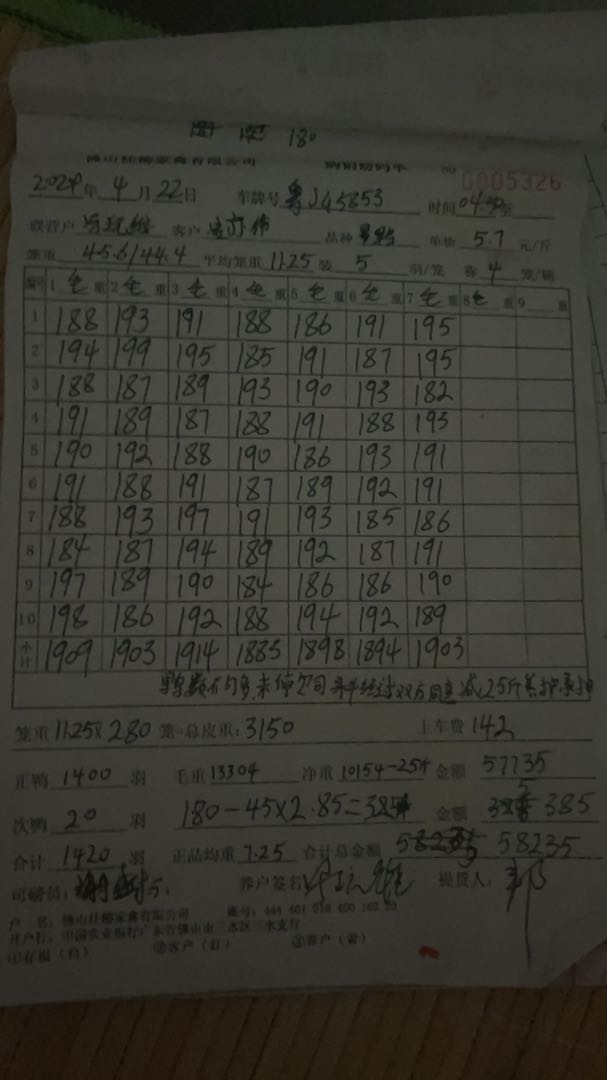 180
佛山佳柳家禽有限公司 购销磅码单 No 0005326
2024年 4月 22日 车牌号 粤J45853 时间 04:50
联营户 客户 品种 单价 5.7 元/斤
笼重 45.6/44.4 平均笼重 11.25 装 5 羽/笼 称 4 笼/磅
编号 1 毛重 2 毛重 3 毛重 4 毛重 5 毛重 6 毛重 7 毛重 8 毛重 9 重
1 188 193 191 188 186 191 195
2 194 199 195 185 191 187 195
3 188 187 189 193 190 193 182
4 191 189 187 188 191 188 195
5 190 192 188 190 186 193 191
6 191 188 191 187 189 192 191
7 188 193 197 191 193 185 186
8 184 187 194 189 192 187 191
9 197 189 190 184 186 186 190
10 198 186 192 188 194 192 189
小计 1909 1903 1914 1885 1898 1894 1903
双方同意减25斤
笼重 11.25× 280 笼=总皮重: 3150 上车费 142
正鸭 1400 羽 毛重 13304 净重 10154-25斤 金额 57735
次鸭 20 羽 180-45×2.85=385 金额 385
合计 1420 羽 正品均重 7.25 合计总金额 58235
司磅员: 养户签名 提货人:
户 名: 佛山佳柳家禽有限公司 账号: 444 401 010 400 168 39
开户行: 中国农业银行广东省佛山市三水区三水支行
①存根(白) ②客户(红) ③客户(黄)